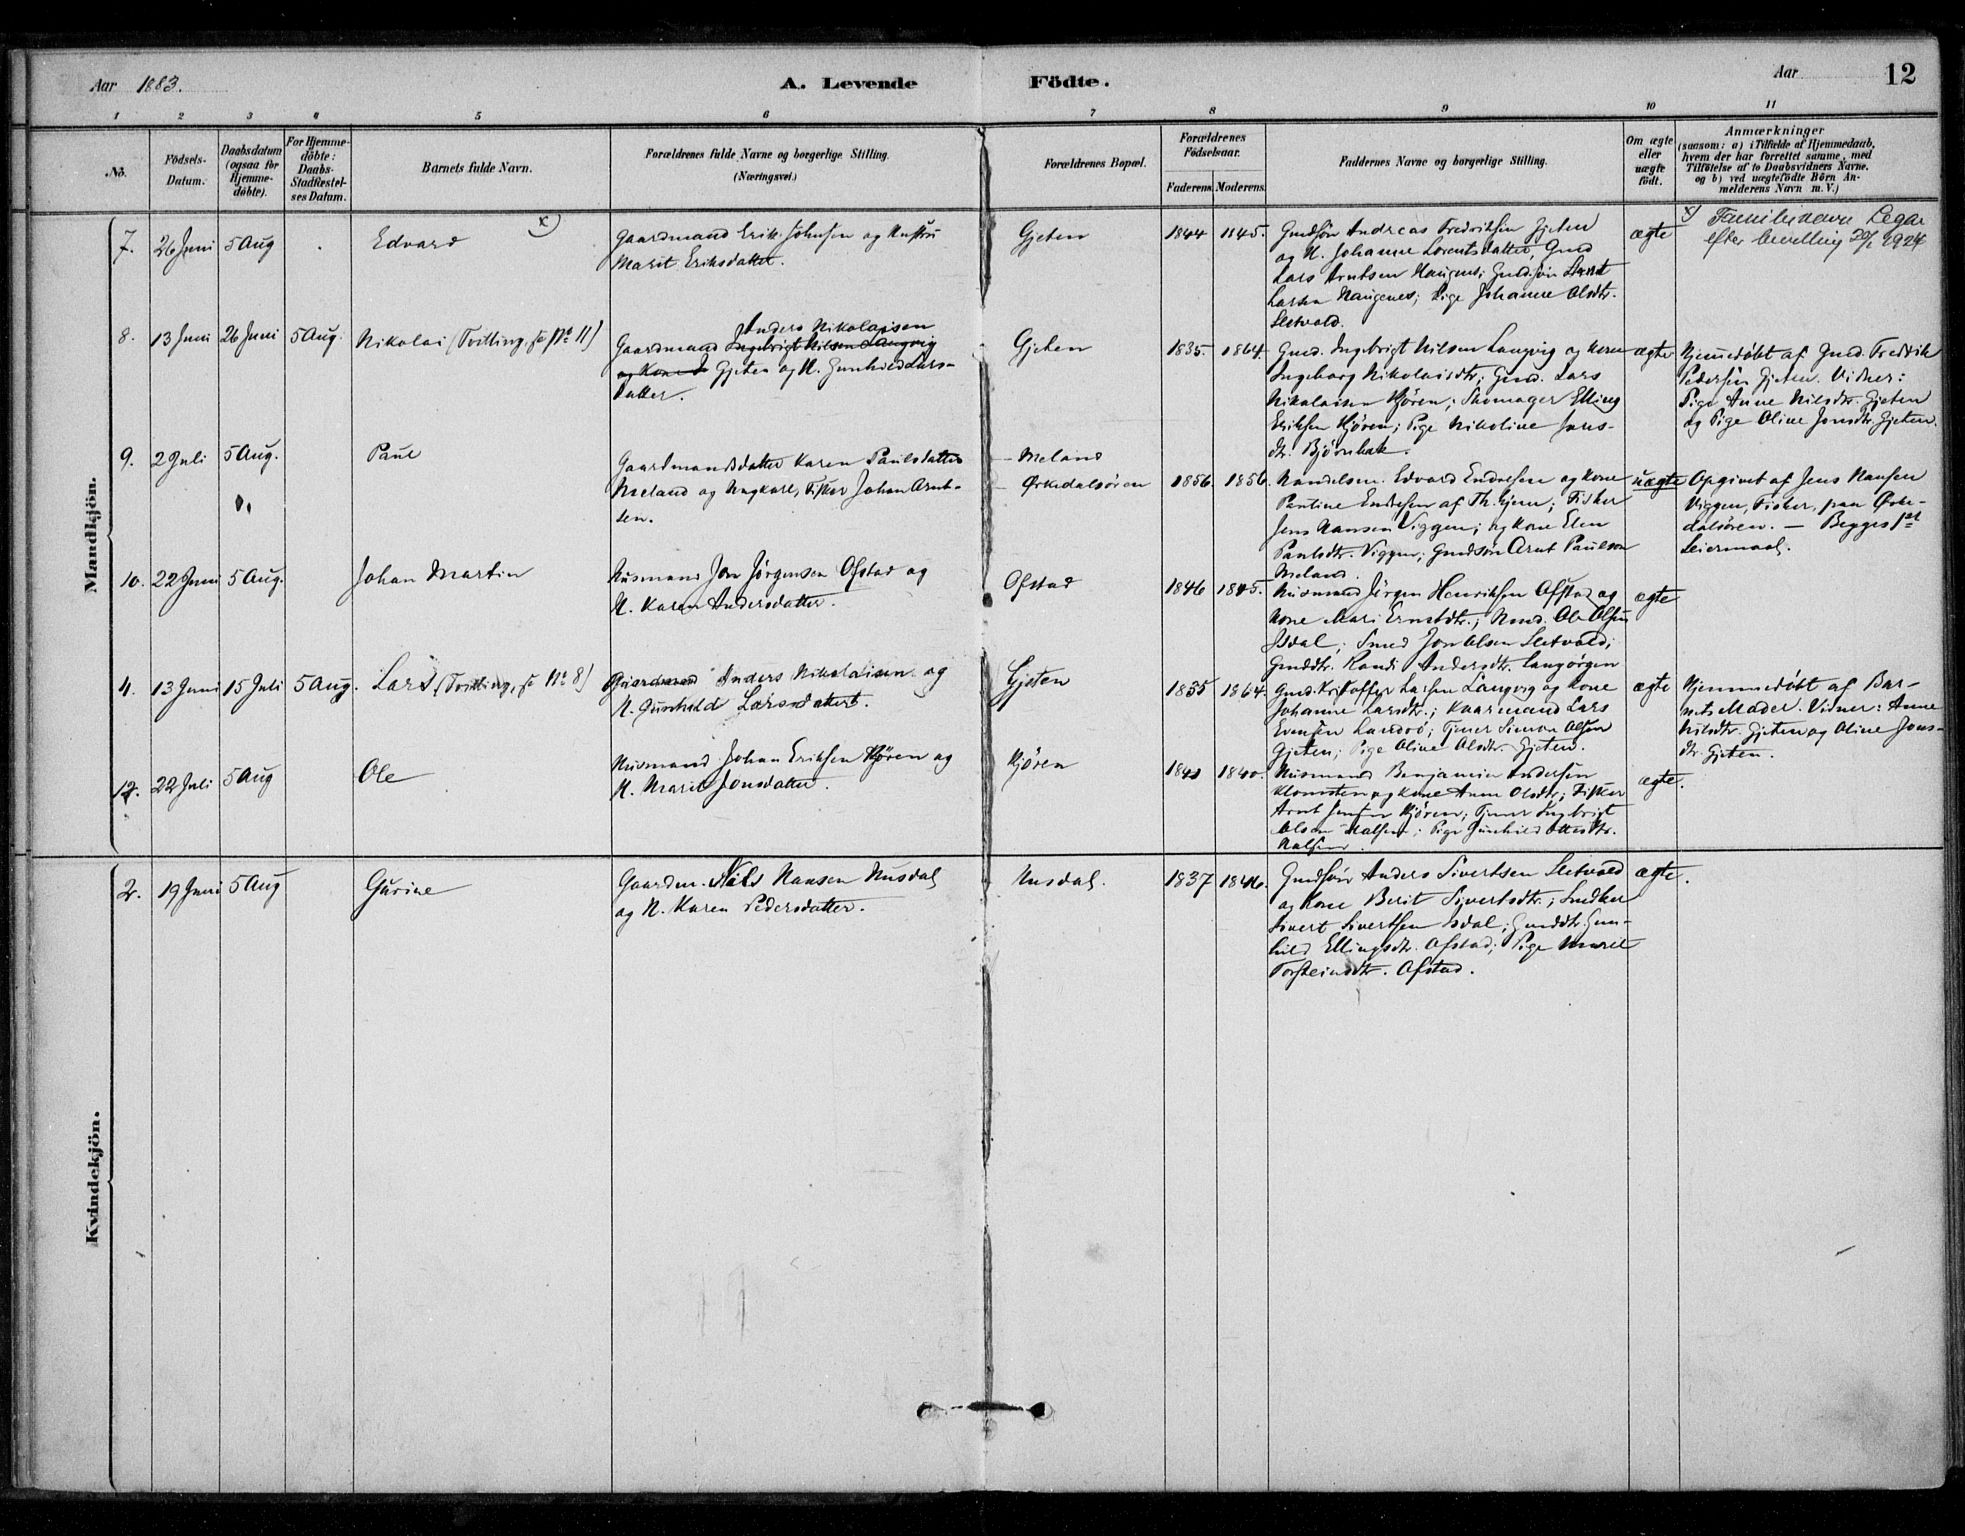 Aar 1883. A. Levende Födte. Aar 12
1 2 3 4 5 6 7 8 9 10 11
No.
Födsels-
Datum.
Daabsdatum
(ogsaa for
Hjemme-
döbte).
For Hjemme-
döbte:
Daabs-
Stadfæstel-
ses Datum.
Barnets fulde Navn.
Forældrenes fulde Navne og borgerlige Stilling.
(Næringsvei.)
Forældrenes Bopæl.
Forældrenes
Födselsaar.
Faderens. Moderens.
Faddernes Navne og borgerlige Stilling.
Om ægte
eller
uægte
födt.
Anmærkninger
(saasom: a) i Tilfælde af Hjemmedaab,
hvem der har forrettet samme, med
Tilföielse af to Daabsvidners Navne.
og b) ved uægtefödte Börn An-
melderens Navn m. V.)
Mandkjön.
7. 26 Juni 5 Aug Edvard x)
Gaardmand Erik Johnsen og Hustru
Marit Eriksdatter.
Gjeten
1844 1845.
Gmdsön Andreas Fredriksen Gjeten
og H. Johanne Lorentsdatter, Gmd
Lars Arntsen Haugenes; Gmd.sön
Larsen Haugenes; Pige Johanne Olsdtr.
Sletvold.
ægte
x) Familienavn Legar
efter bevilling 20/1 1924
8. 13 Juni 26 Juni 5 Aug. Nikolai (Tvilling, se No 11)
Anders Nikolaisen
Gaardmand Ingebrigt Nilsen Langvig
og Kone I Gjeten og H. Gunhild Lars-
datter.
Gjeten
1835. 1864
Gmd. Ingebrigt Nilsen Langvig og Kone
Ingeborg Nikolaisdtr; Gmd. Lars
Nikolaisen Kjören; Skomager Elling
Eriksen Kjören; Pige Nikoline Jons-
dtr. Björnbek.
ægte
Hjemmedöbt af Gmd. Fredrik
Pedersen Gjeten. Vidner:
Pige Anne Nilsdtr. Gjeten
og Pige Oline Jonsdtr Gjeten.
9. 2 Juli 5 Aug. Paul
Gaardmandsdatter Karen Paulsdatter
Meland og Ungkarl, Fisker Johan Arnt-
sen.
- Meland
- Ørkedalsören
1856 1856.
Handelsm. Edvard Endresen og Kone
Pantine Endresen af Th.hjem; Fisker
Jens Hansen Viggen; og Kone Elen
Paulsdtr. Viggen; Gmdsön Arnt Paulsen
Meland.
uægte
Opgivet af Jens Hansen
Viggen, Fisker, paa Örke-
dalsören. — Begges 1ste
Leiermaal.
10. 22 Juni 5 Aug. Johan Martin
Husmand Jon Jörgensen Ofstad og
H. Karen Andersdatter.
Ofstad
1846 1845.
Husmand Jörgen Henriksen Ofstad og
Kone Mari Ernstdtr.; Hmd. Ole Olsen
Isdal; Smed Jon Olsen Sletvold;
Gmddtr. Randi Andersdtr. Langörgen
ægte
11. 13 Juni 15 Juli 5 Aug. Lars (Tvilling, se No 8)
Gaardmand Anders Nikolaisen og
H. Gunhild Larsdatter.
Gjeten
1835 1864.
Gmd. Kristoffer Larsen Langvig og Kone
Johanne Larsdtr.; Kaarmand Lars
Evensen Landrö; Tjener Simon Olsen
Gjeten; Pige Oline Olsdtr. Gjeten.
ægte
Hjemmedöbt af Bar-
nets Moder. Vidner: Anne
Nilsdtr. Gjeten og Oline Jons-
dtr. Gjeten.
12. 22 Juli 5 Aug Ole
Husmand Johan Eriksen Kjören og
H. Marit Jonsdatter.
Kjören
1840.
Husmand Benjamin Andersen
Klomsten og Kone Anne Olsdtr; Fisker
Arnt Jensen Kjören; Tjener Ingebrigt
Olsen Halsen; Pige Gunhild Ottersdtr.
Halsen.
ægte.
Kvindekjön.
2. 19 Juni 5 Aug Gurine
Gaardm. Nils Hansen Husdal
og H. Karen Pedersdatter.
Husdal.
1837 1846.
Gmdsön Anders Sivertsen Sletvold
og Kone Berit Sivertsdtr.; Smdkar
Sivert Sivertsen Isdal; Gmddtr. Gun-
hild Ellingsdtr. Ofstad; Pige Marit
Torsteinsdtr. Ofstad.
ægte.